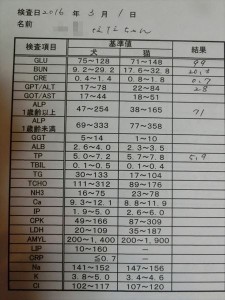 検査日 2016 年 5 月 1 日
名前
検査項目 基準値 結果
犬 猫
GLU 75~128 71~148 99
BUN 9.2~29.2 17.6~32.8
CRE 0.4~1.4 0.8~1.8 0.7
GPT/ALT 17~78 22~84 28
GOT/AST 17~44 18~51
ALP 1歳齢以上 47~254 38~165 71
ALP 1歳齢未満 69~333 77~358
GGT 5~14 1~10
ALB 2.6~4.0 2.3~3.5
TP 5.0~7.2 5.7~7.8 5.9
TBIL 0.1~0.5 0.1~0.4
TG 30~133 17~104
TCHO 111~312 89~176
NH3 16~75 23~78
Ca 9.3~12.1 8.8~11.9
IP 1.9~5.0 2.6~6.0
CPK 49~166 87~309
LDH 20~109 35~187
AMYL 200~1,400 200~1,900
LIP 10~160 ―
CRP ≦0.7 ―
Na 141~152 147~156
K 3.8~5.0 3.4~4.6
Cl 102~117 107~120